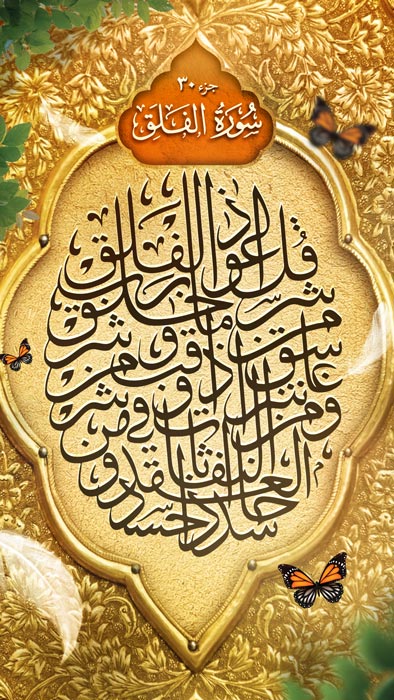 جزء ٣٠
سُورَةُ الفَلَق
قُل اعوذ برب الفلق
من شر ما خلق و من شر
غاسق اذا وقب و من شر
النفاثات في العقد و من شر
حاسد اذا حسد